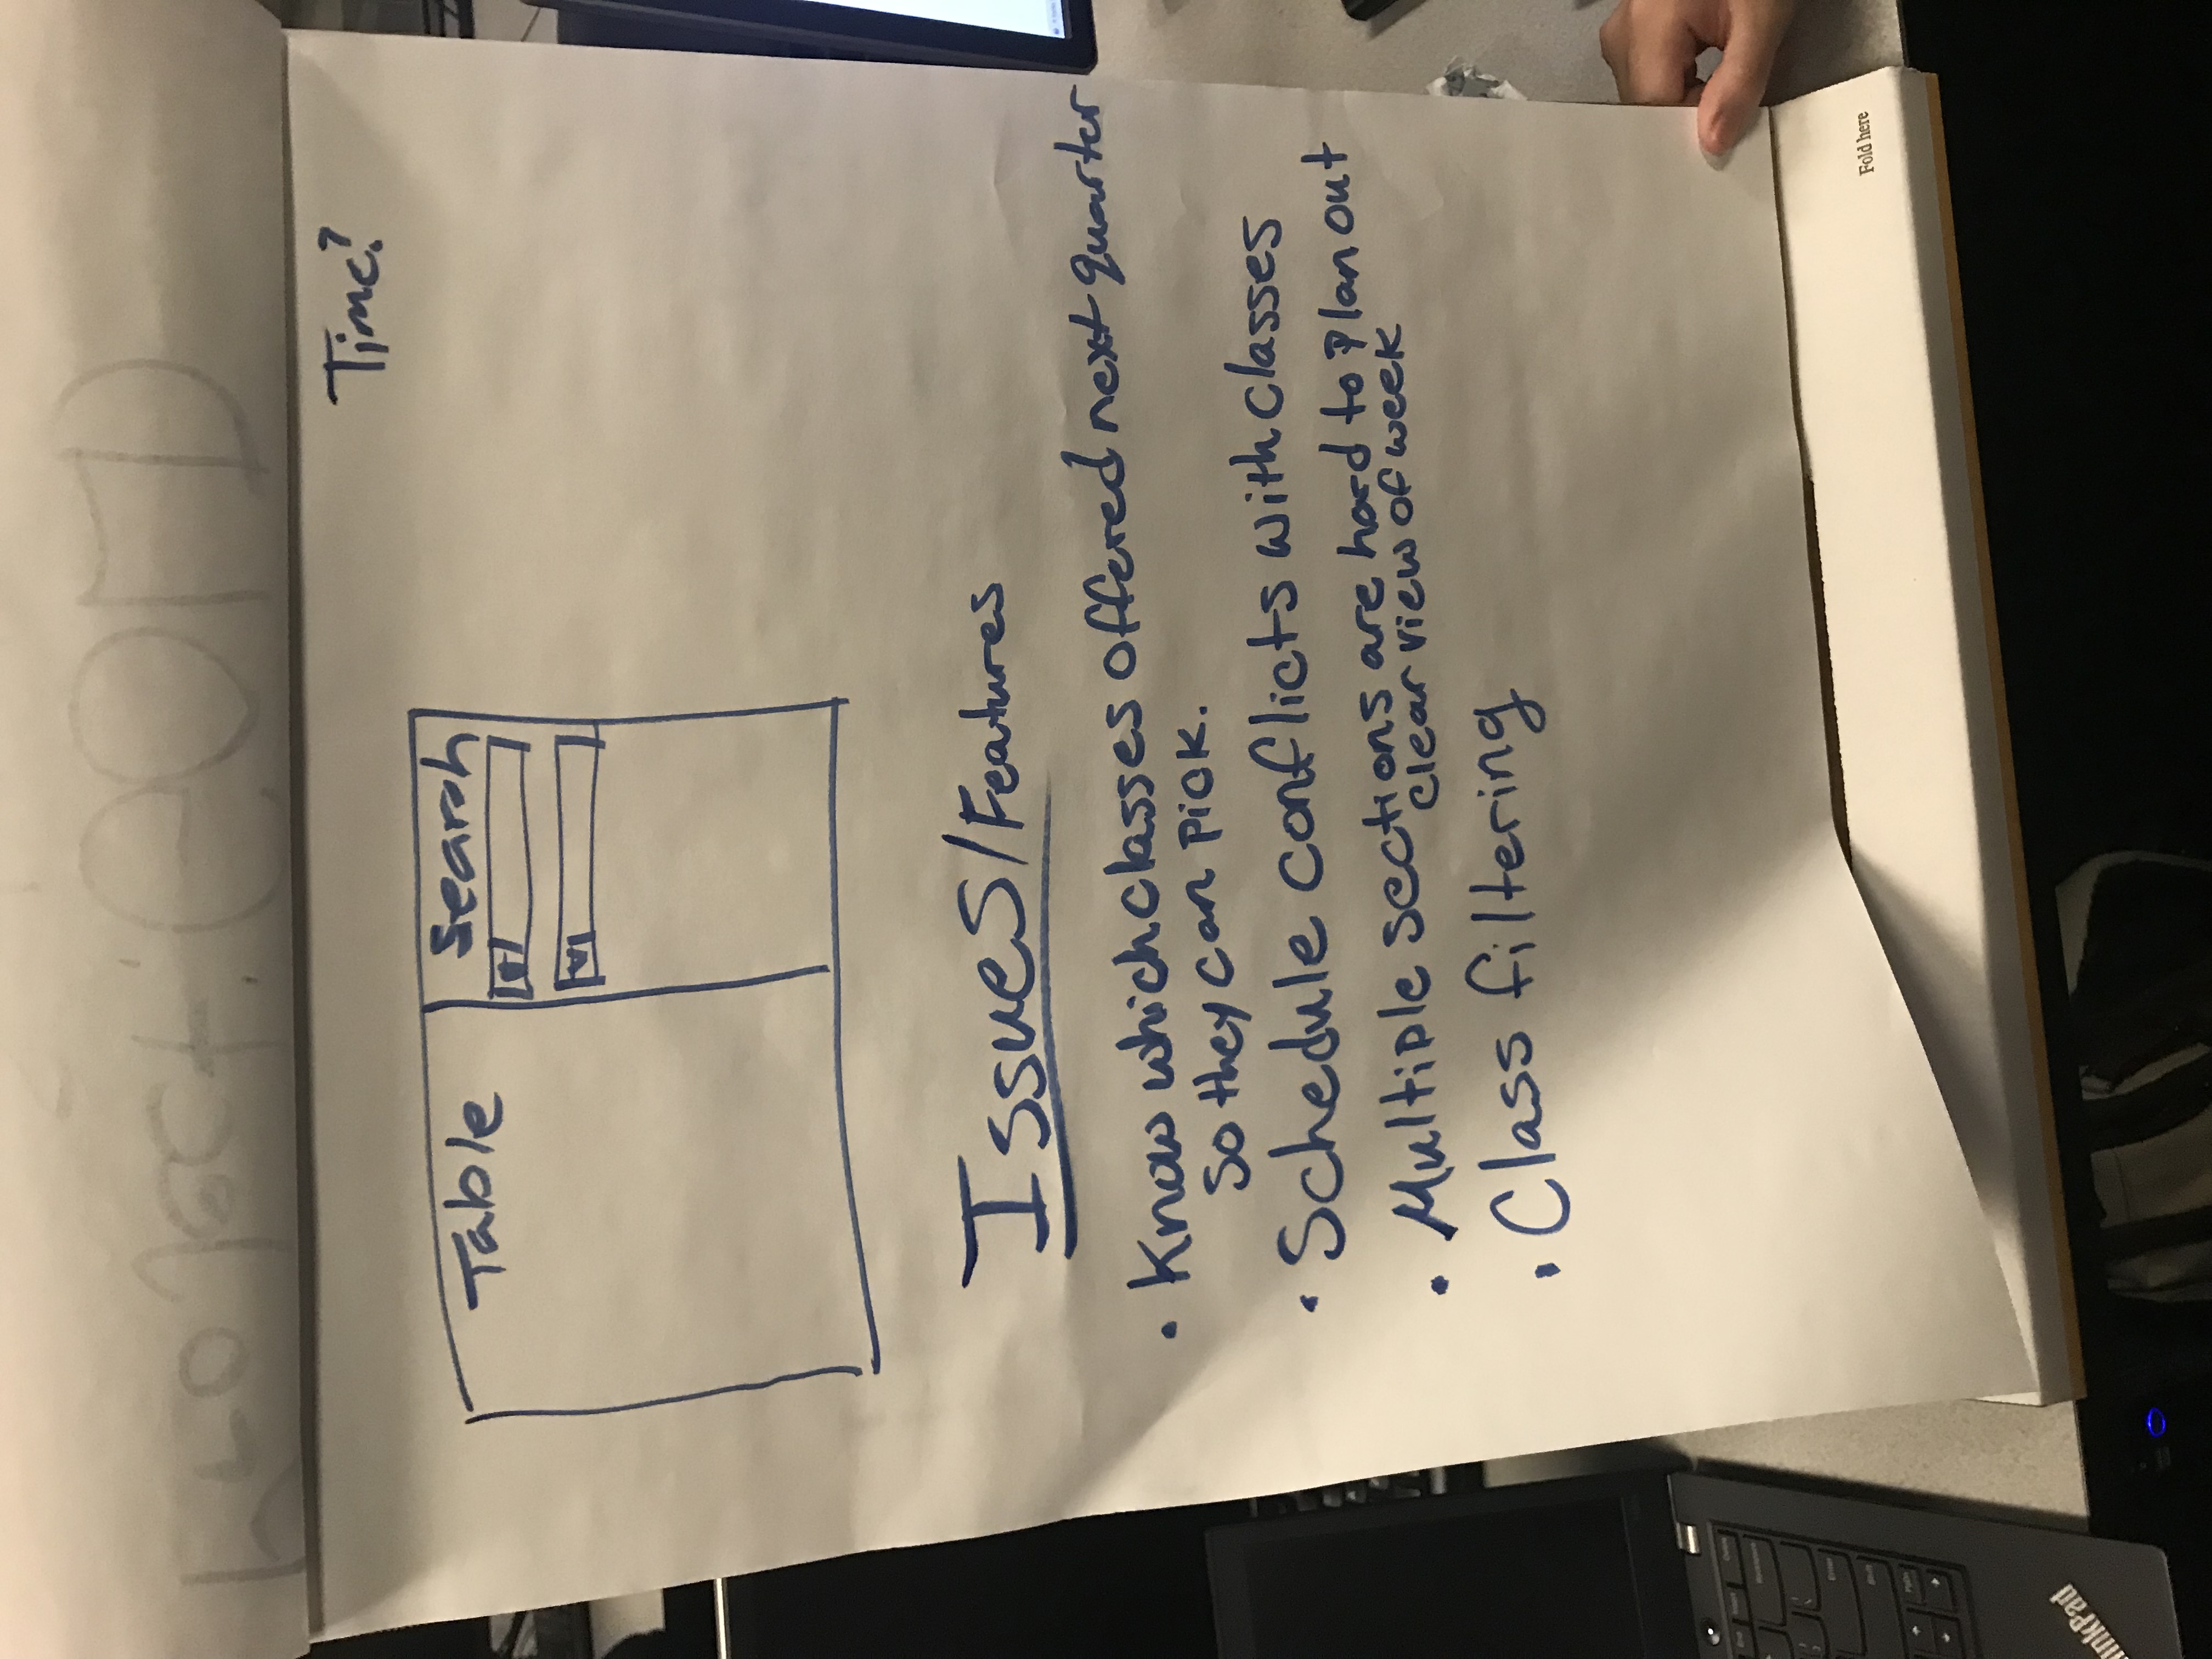 Project:
Time?
Table
Search
Issues/Features
• Know which classes offered next quarter
so they can pick.
• Schedule conflicts with classes
• Multiple sections are hard to plan out
clear view of week
• Class filtering
Fold here
Delete
Backspace
Enter
Shift
PgDn
inkPad